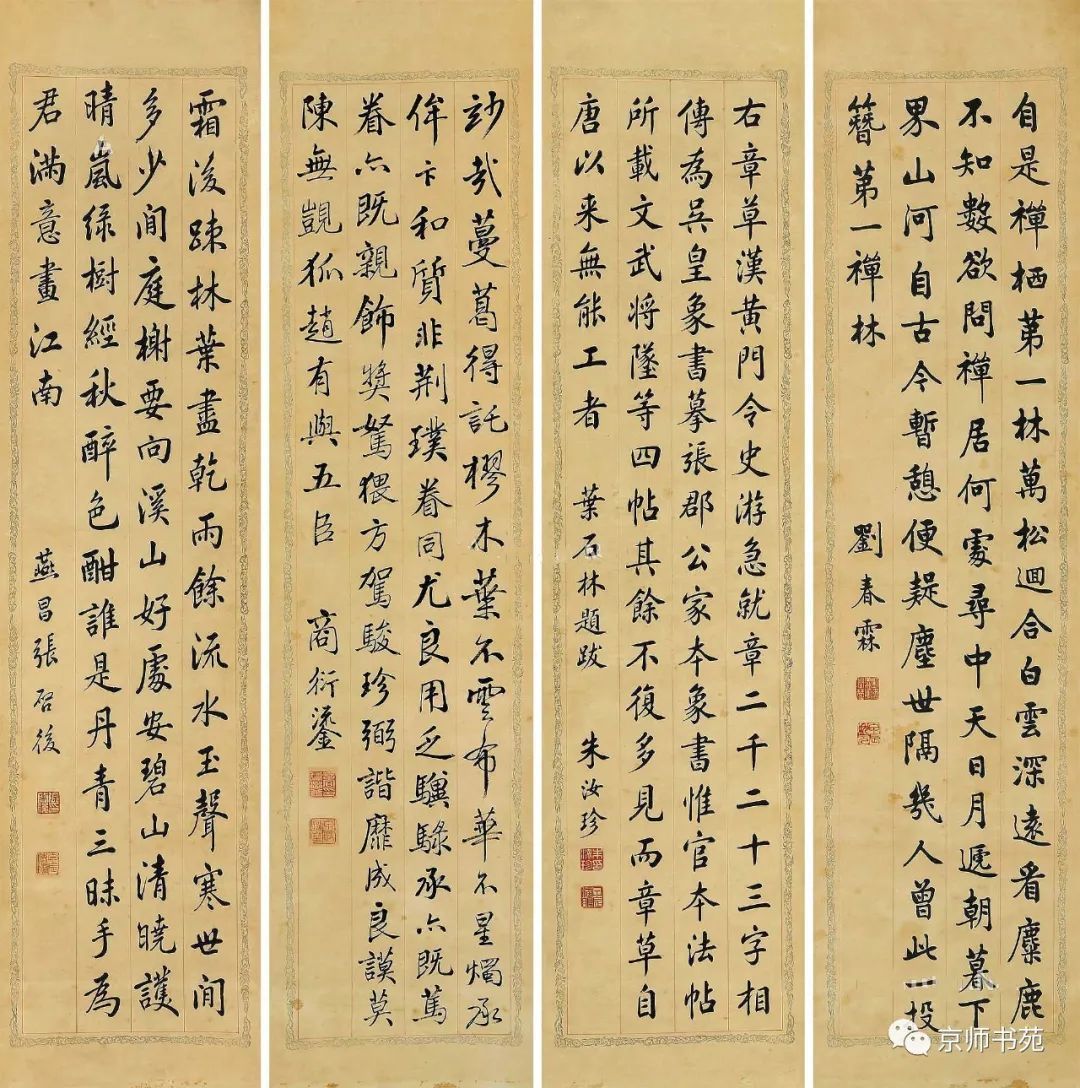 自是禪栖第一林萬松迴合白雲深遠看麋鹿
不知數欲問禪居何處尋中天日月遞朝暮下
界山河自古今暫憩便疑塵世隔幾人曾此一投
簪第一禪林
劉春霖
右章草漢黃門令史游急就章二千二十三字相
傳為吳皇象書摹張郡公家本象書惟官本法帖
所載文武將墜等四帖其餘不復多見而章草自
唐以来無能工者
葉石林題跋
朱汝珍
玅哉蔓葛得託樛木葉不雲布華不星燭承
侔卞和質非荊璞眷同尤良用乏驥騄承亦既篤
眷亦既親飾獎駑猥方駕駿珍弼諧靡成良謨莫
陳無覬狐趙有與五臣
商衍瀛
霜後疎林葉盡乾雨餘流水玉聲寒世間
多少閒庭榭要向溪山好處安碧山清曉護
晴嵐綠樹經秋醉色酣誰是丹青三昧手為
君滿意畫江南
燕昌張啓後
京师书苑